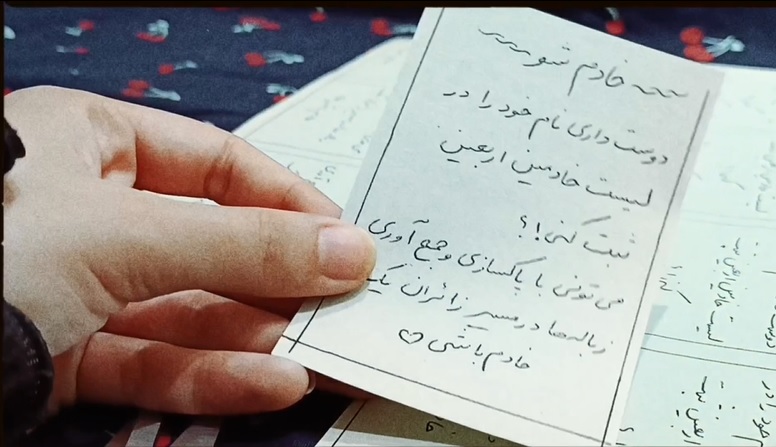 ~~~ خادم شو ~~~
دوست داری نام خود را در
لیست خادمین اربعین
ثبت کنی!؟
می تونی با پاکسازی و جمع آوری
زباله ها در مسیر زائران یک
خادم باشی ♡